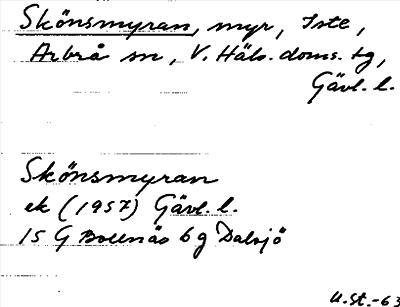 Skönsmyran, myr, Iste,
Arbrå sn, V. Häls. doms. tg,
Gävl. l.
Skönsmyran
ek (1957) Gävl. l.
15 G Bollnäs 6 g Dalsjö
U.St.-63